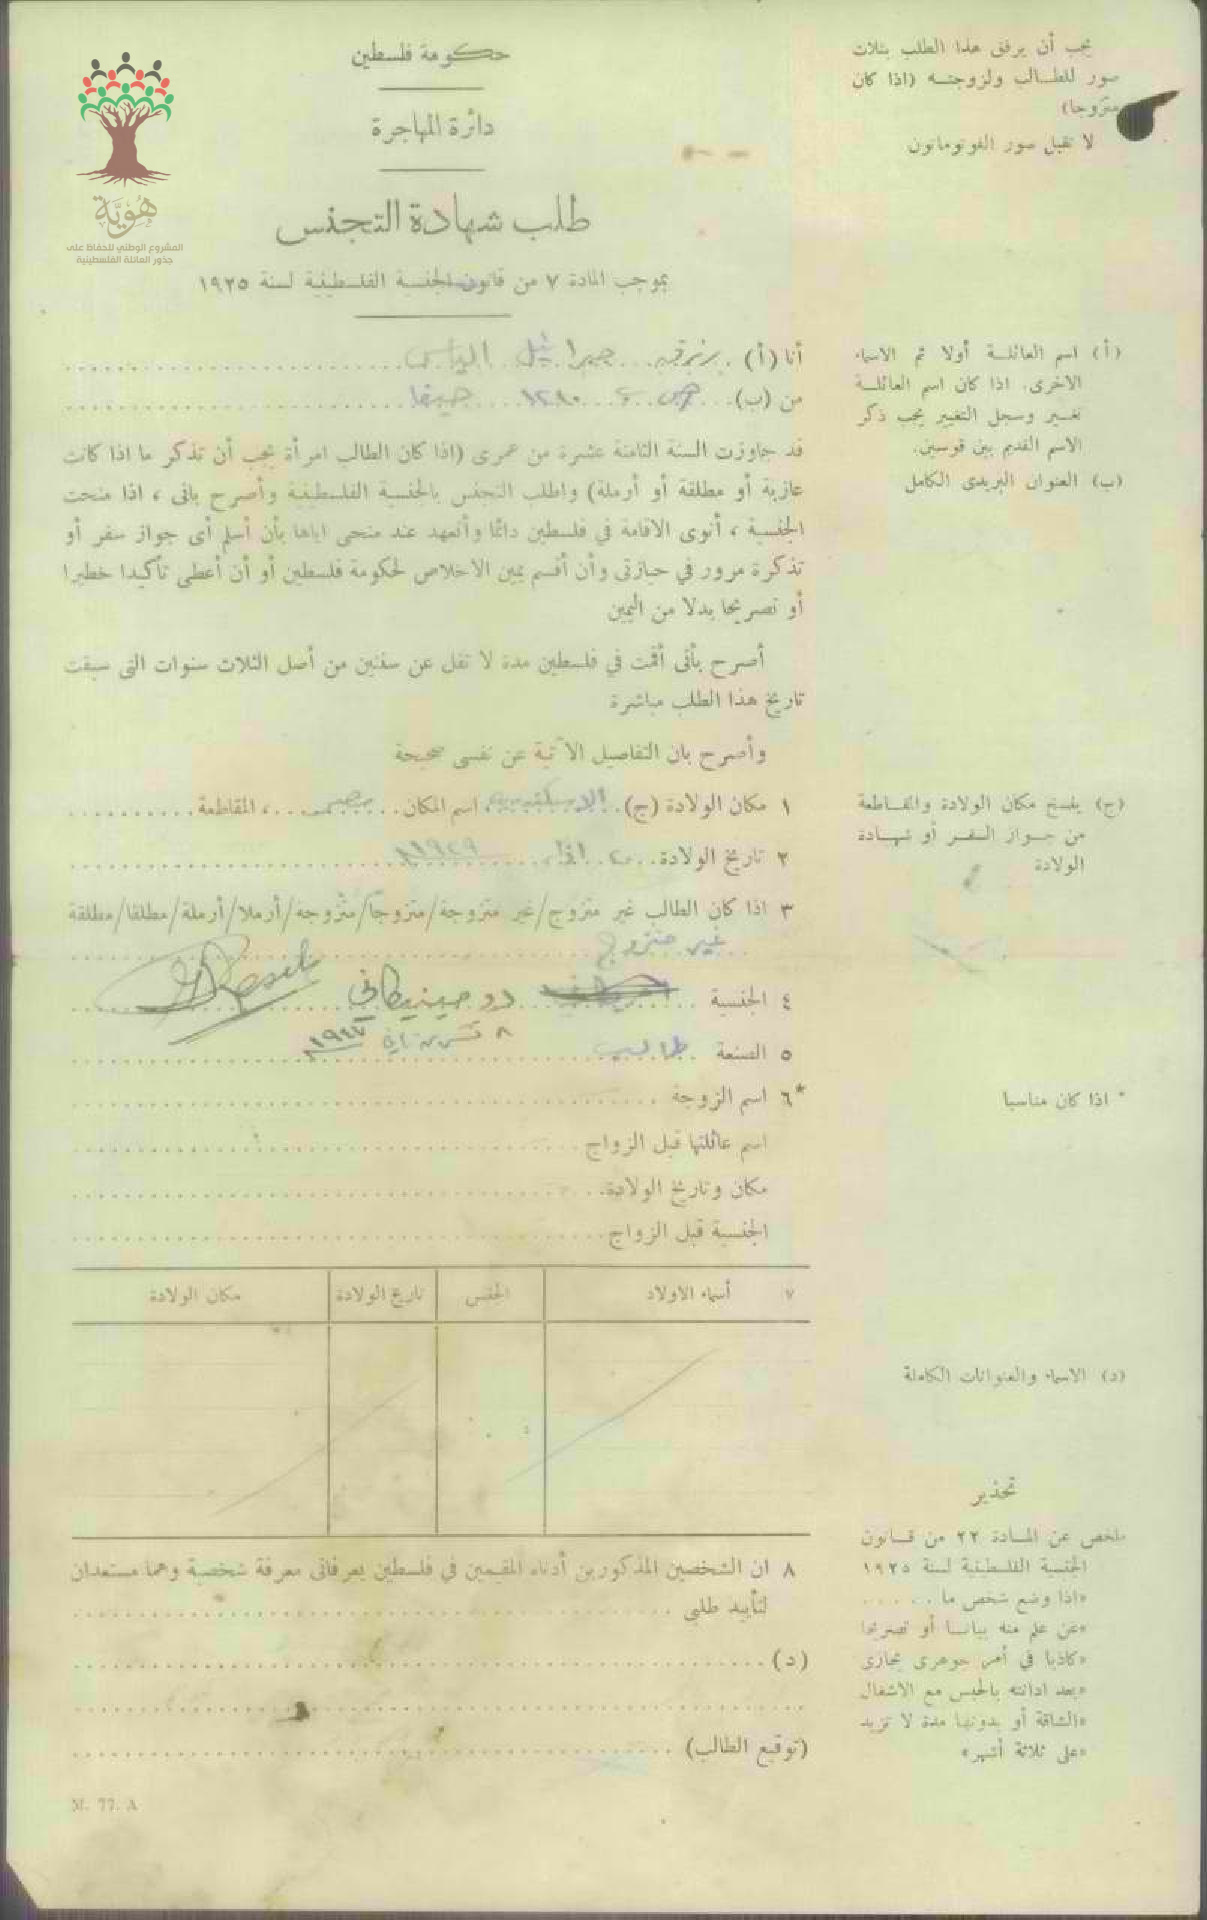 هوية
المشروع الوطني للحفاظ على
جذور العائلة الفلسطينية
حكومة فلسطين
دائرة المهاجرة
طلب شهادة التجنس
بموجب المادة ٧ من قانون الجنسية الفلسطينية لسنة ١٩٢٥
يجب أن يرفق هذا الطلب بثلاث
صور للطالب ولزوجته (اذا كان
متزوجا)
لا تقبل صور الفوتوماتون
أنا (أ) جبرائيل الياس
من (ب) ص ب ١٢٩٠ حيفا
قد جاوزت السنة الثامنة عشرة من عمرى (اذا كان الطالب امرأة يجب أن تذكر ما اذا كانت
عازبة أو مطلقة أو أرملة) واطلب التجنس بالجنسية الفلسطينية وأصرح بانى ، اذا منحت
الجنسية ، أنوى الاقامة في فلسطين دائما وأتعهد عند منحى اياها بأن أسلم أى جواز سفر أو
تذكرة مرور في حيازتى وأن أقسم يمين الاخلاص لحكومة فلسطين أو أن أعطى تأكيدا خطيرا
أو تصريحا بدلا من اليمين
أصرح بأنى أقمت في فلسطين مدة لا تقل عن سنتين من أصل الثلاث سنوات التى سبقت
تاريخ هذا الطلب مباشرة
وأصرح بان التفاصيل الآتية عن نفسى صحيحة
١ مكان الولادة (ج) اسم المكان ، المقاطعة
٢ تاريخ الولادة
٣ اذا كان الطالب غير متزوج/غير متزوجة/متزوجا/متزوجة/أرملا/أرملة/مطلقا/مطلقة
غير متزوج
٤ الجنسية دومينيكاني
٨ تشرين ثاني ١٩٤٧
٥ الصنعة طالب
*٦ اسم الزوجة
اسم عائلتها قبل الزواج
مكان وتاريخ الولادة
الجنسية قبل الزواج
٧ أسماء الاولاد الجنس تاريخ الولادة مكان الولادة
٨ ان الشخصين المذكورين أدناه المقيمين في فلسطين يعرفانى معرفة شخصية وهما مستعدان
لتأييد طلبى
(د)
(توقيع الطالب)
M. 77. A
(أ) اسم العائلة أولا ثم الاسماء
الاخرى. اذا كان اسم العائلة
تغير وسجل التغيير يجب ذكر
الاسم القديم بين قوسين.
(ب) العنوان البريدى الكامل
(ج) ينسخ مكان الولادة والمقاطعة
من جواز السفر أو شهادة
الولادة
* اذا كان مناسبا
(د) الاسماء والعنوانات الكاملة
تحذير
ملخص عن المادة ٢٢ من قانون
الجنسية الفلسطينية لسنة ١٩٢٥
«اذا وضع شخص ما . . . . . .
«عن علم منه بيانا أو تصريحا
«كاذبا في أمر جوهرى يجازى
«بعد ادانته بالحبس مع الاشغال
«الشاقة أو بدونها مدة لا تزيد
«على ثلاثة أشهر»